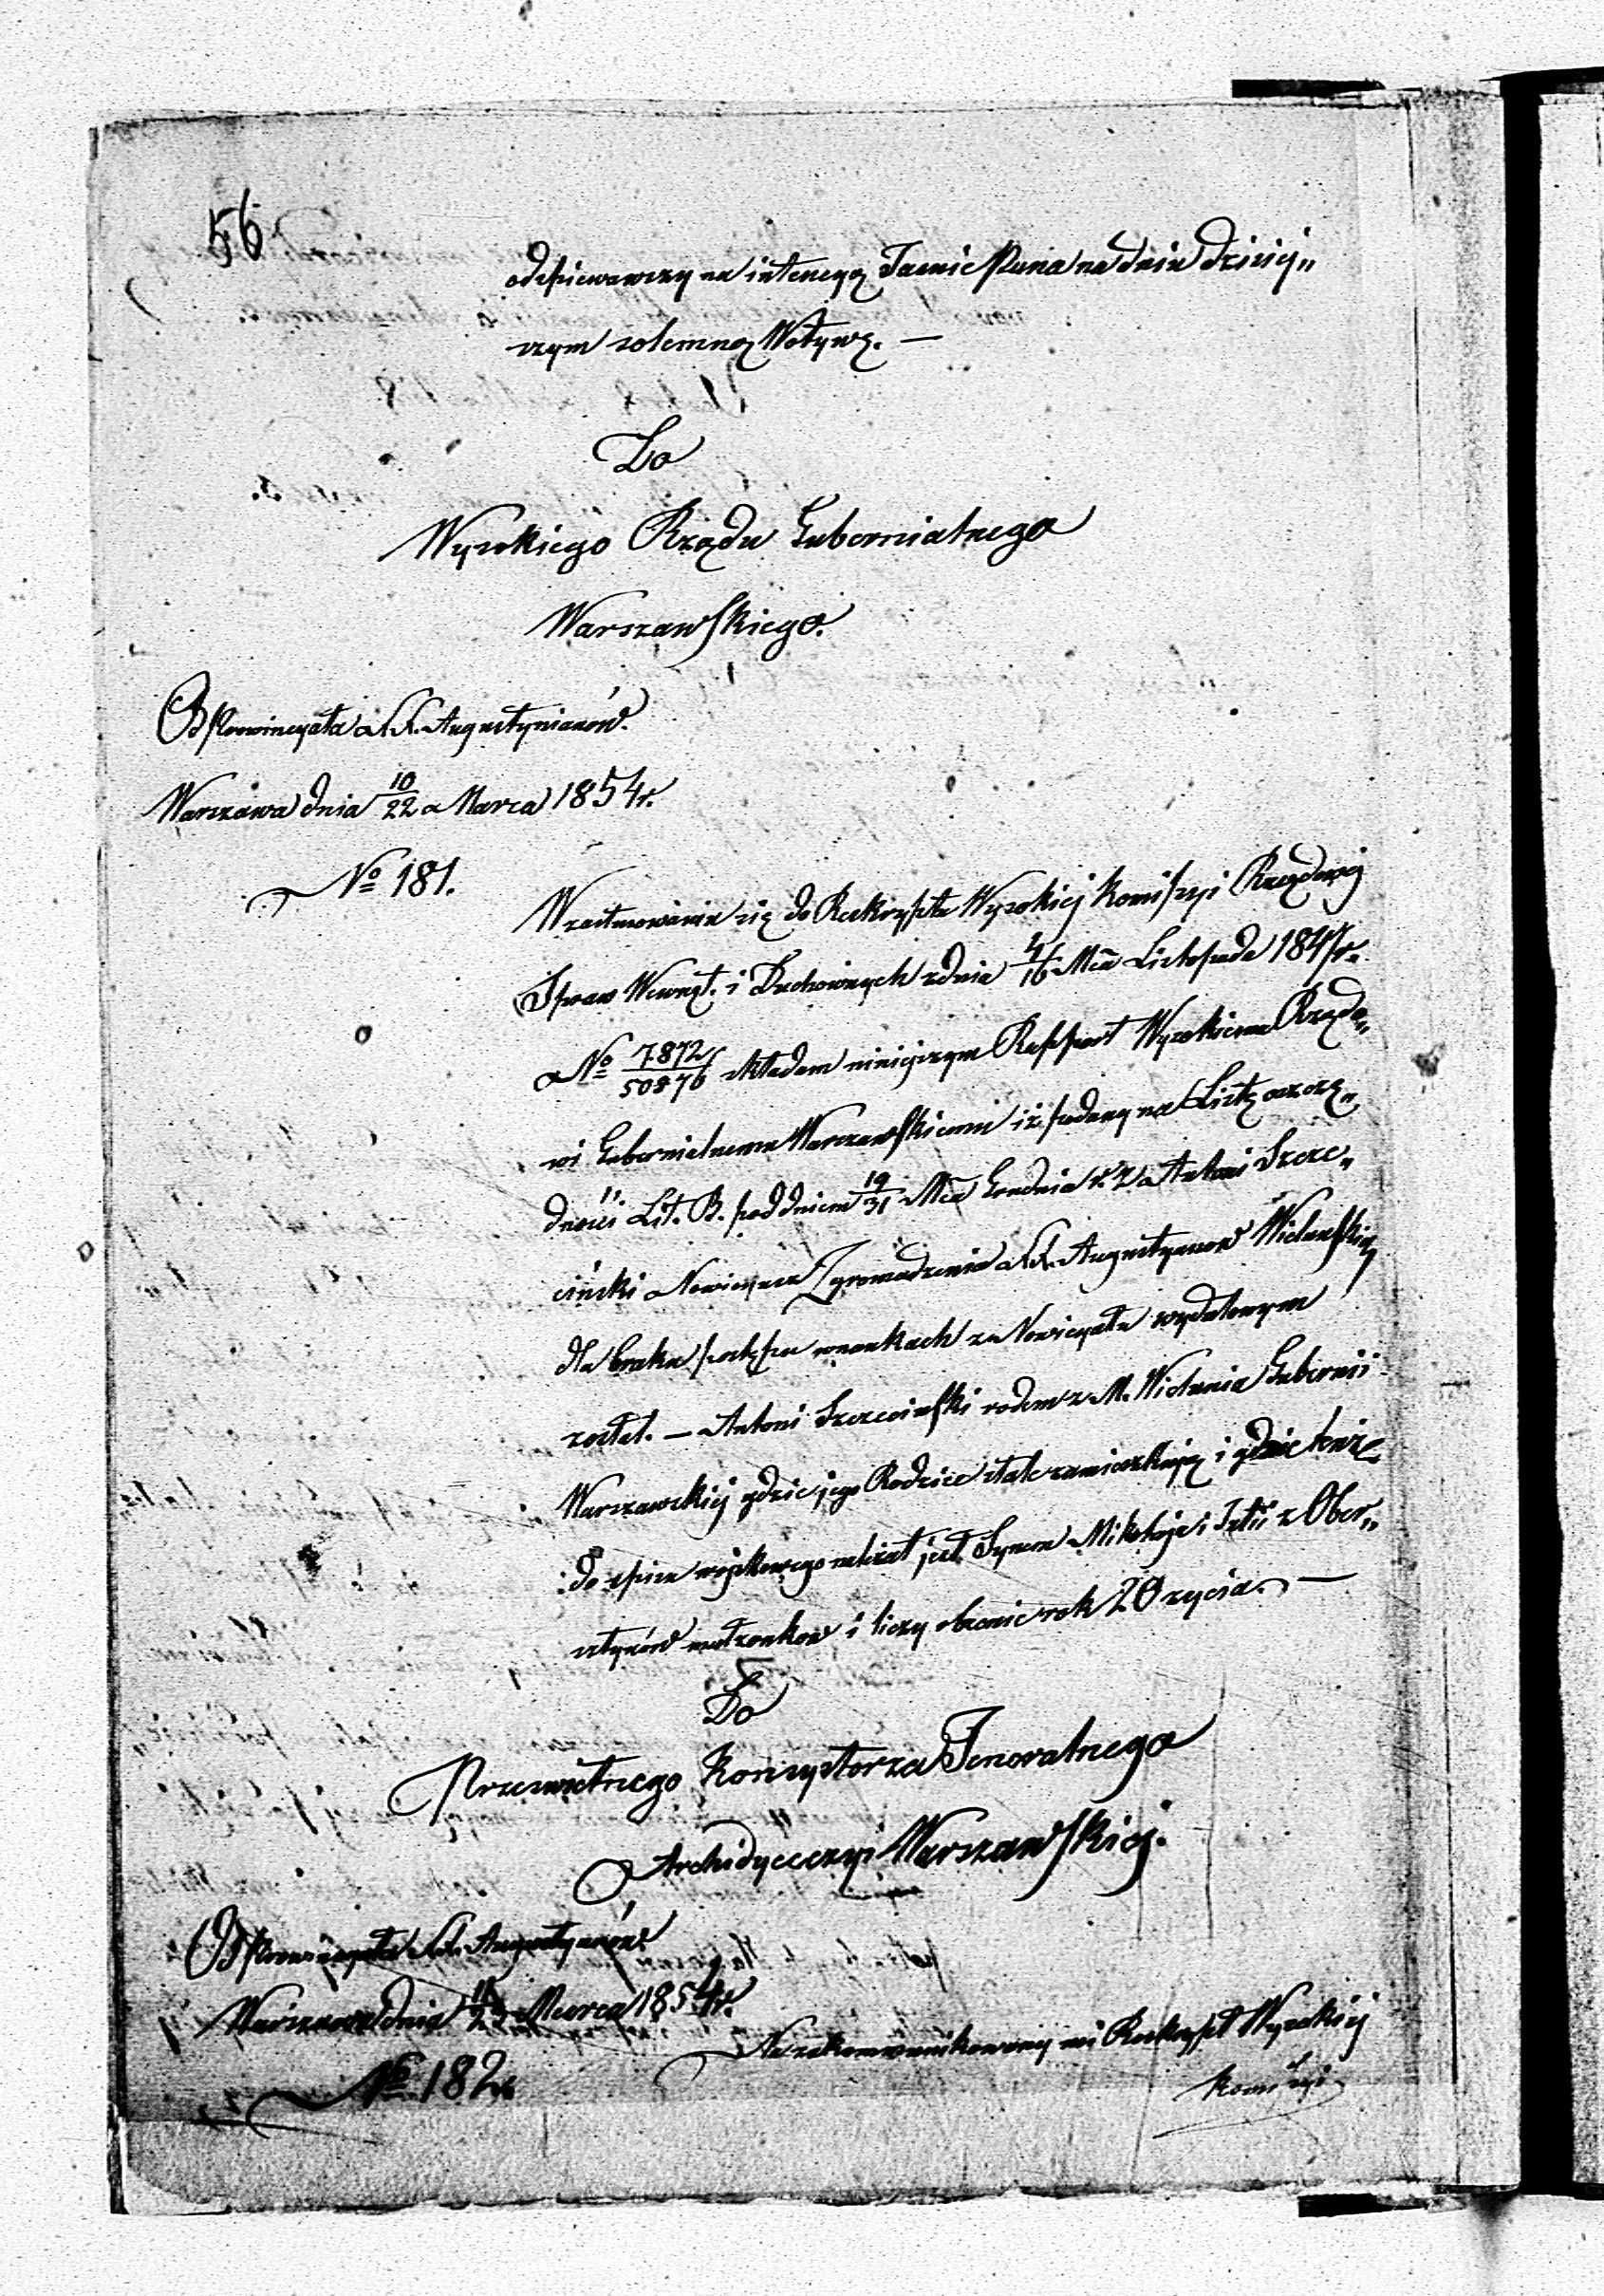 56
odspiewawszy na intencyą Jasnie Pana na dniu dzisiej„
szym solemną Wotywę. —
Do
Wysokiego Rządu Gubernialnego
Warszawskiego.
Od Prowincyała XX. Augustynianów.
Warszawa dnia 10/22 Marca 1854 r.
No 181.
W zastosowaniu się do Reskryptu Wysokiej Komissyi Rządowej
Spraw Wewnęt. i Duchownych z dnia 4/16 Mca Listopada 1847 r.
No 7872/50876 składam niniejszym Rapport Wysokiemu Rządo„
wi Gubernialnemu Warszawskiemu iż podany na Listę
dności Lit. B. pod dniem 19/31 Mca Grudnia r. z. Antoni Szcze„
ciński Nowicyusz Zgromadzenia XX. Augustyanow Wieluński
dla braku postępu w naukach z Nowicyatu wydalonym
został. — Antoni Szczecinski rodem z M. Wielunia Gubernii
Warszawskiej gdzie jego Rodzice stale zamieszkują i gdzie tenże
do spisu wojskowego należał jest Synem Mikołaja i z Ober„
sztynów małżonkow i liczy obecnie rok 20 życia. —
Do
Prześwietnego Konsystorza Jeneralnego
Archidyecezyi Warszawskiej.
Od Prowincyała XX. Augustyanów
Warszawa dnia Marca 1854 r.
No 182.
Na zakommunikowany mi Reskrypt Wysokiej
Komissyi